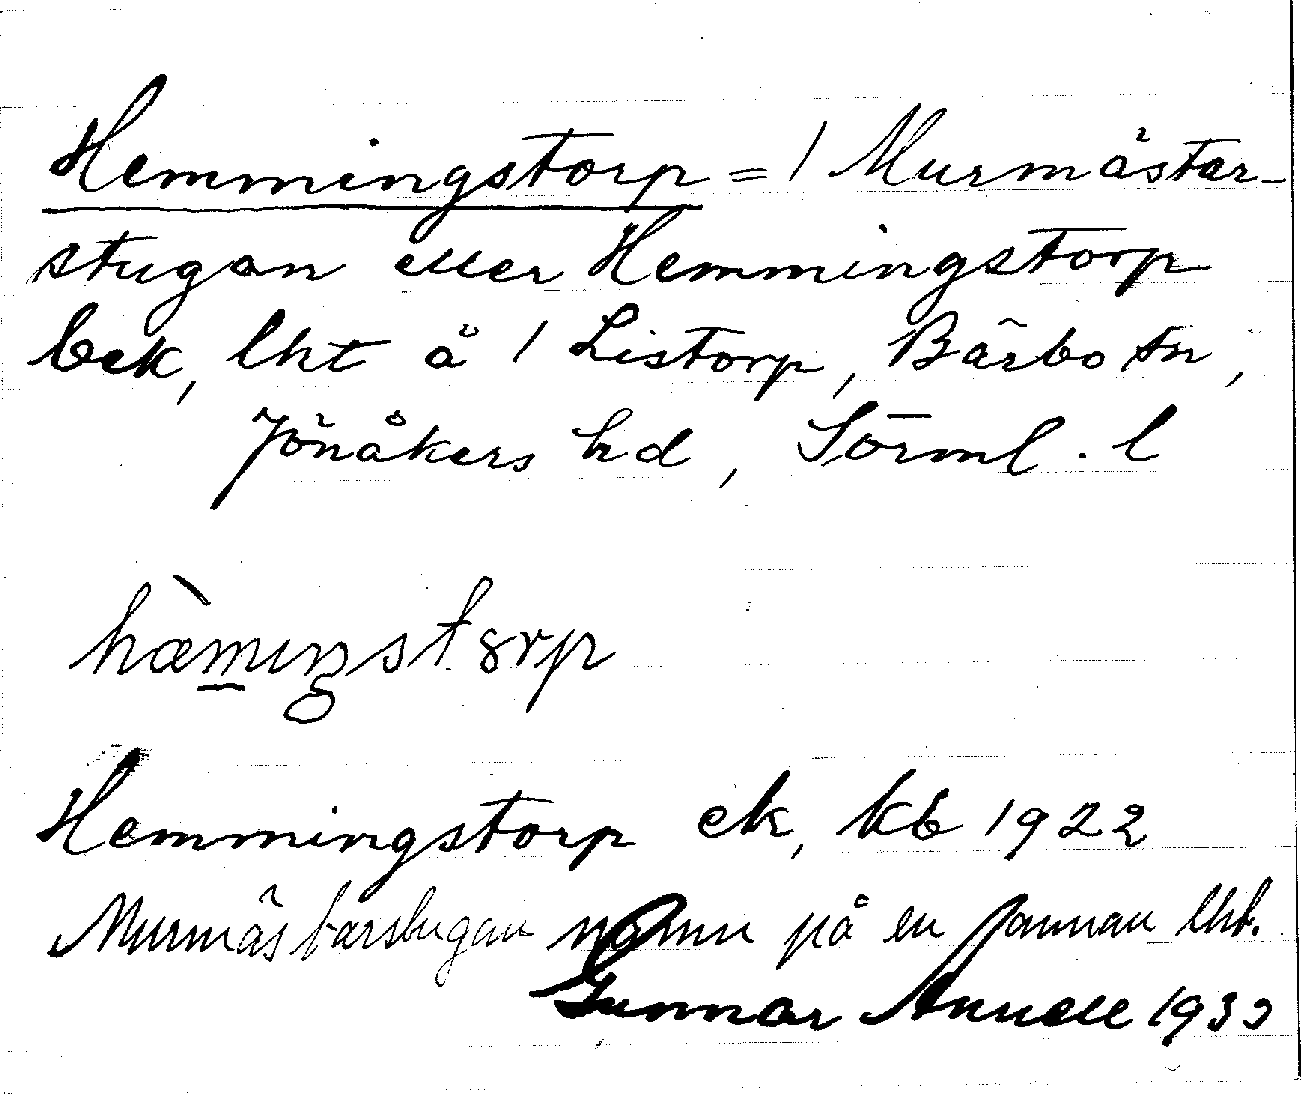 Hemmingstorp = / Murmästar-
stugan eller Hemmingstorp
bek, lht å / Listorp, Bärbo sn,
Jönåkers hd, Sörml. l
hæ̀mıŋstɔrp
Hemmingstorp ek, kb 1922
Murmästarstugan på en annan lht.
Gunnar Annell 1933